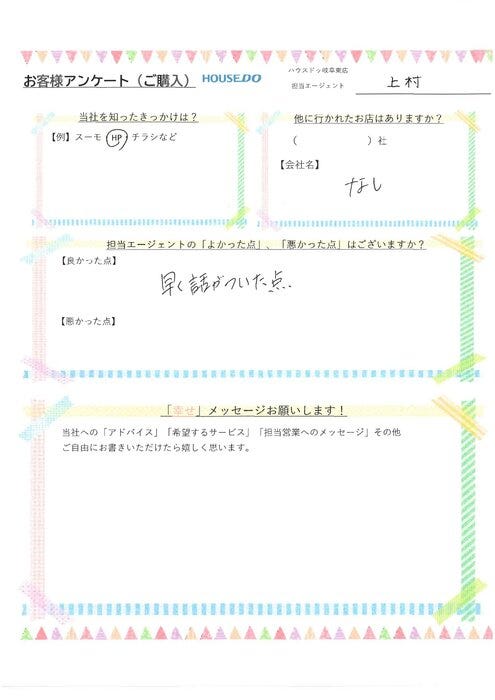 お客様アンケート（ご購入） HOUSE.DO
ハウスドゥ岐阜東店
担当エージェント 上村
当社を知ったきっかけは？
【例】スーモ HP チラシなど
他に行かれたお店はありますか？
（　　　　　　）社
【会社名】
なし
担当エージェントの「よかった点」、「悪かった点」はございますか？
【良かった点】
早く話がついた点.
【悪かった点】
「幸せ」メッセージお願いします！
当社への「アドバイス」「希望するサービス」「担当営業へのメッセージ」その他
ご自由にお書きいただけたら嬉しく思います。